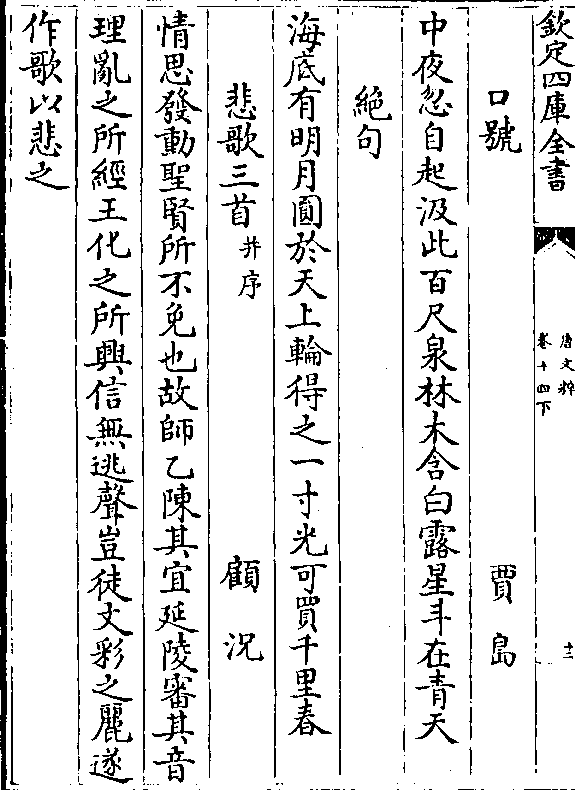 欽定四庫全書
唐文粹
卷十四下
十二
口號 賈島
中夜忽自起汲此百尺泉林木含白露星斗在青天
絕句
海底有明月圓於天上輪得之一寸光可買千里春
悲歌三首并序 顧況
情思發動聖賢所不免也故師乙陳其宜延陵審其音
理亂之所經王化之所興信無逃聲豈徒文彩之麗遂
作歌以悲之